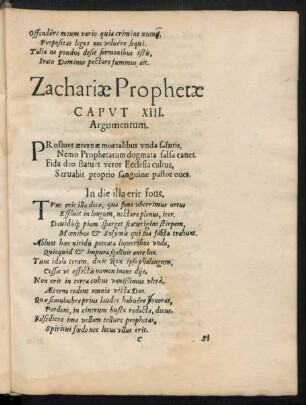 Offendêre meum vario quia crimine numẽ,
Propositas leges nec voluêre sequi.
Talia ne pondus desit sermonibus istis,
Irato Dominus pectore summus ait.
Zachariæ Prophetæ
CAPVT XIII.
Argumentum.
PRofluet æternæ mortalibus vnda salutis,
Nemo Prophetarum dogmata falsa canet.
Fida deo statuet veros Ecclesia cultus,
Seruabit proprio sanguine pastor oues.
In die illa erit fons,
TVnc erit illa dies, qua fons vberrimus ortus
Effluet in longum, nectare plenus, iter.
Dauidis piam sparget scaturigine stirpem,
Manibus & Solymæ qui sua facta trahunt.
Abluet hæc nitidis peccata liquoribus vnda,
Quicquid & impura spelluit ante lue.
Tunc idola teram, dicit Rex ipse polorum,
Cesset vt afficti nomen inane dijs.
Non erit in terra cultus vanissimus vltrà,
Æterno cedent omnia victa Deo.
Quæ simulachra prius laudes habuêre sonoras,
Perdent, in cinerem busta redacta, decus.
Falsidicos ima vellam tellure prophetas,
Spiritui fœdo nec locus vllus erit.
C
Si